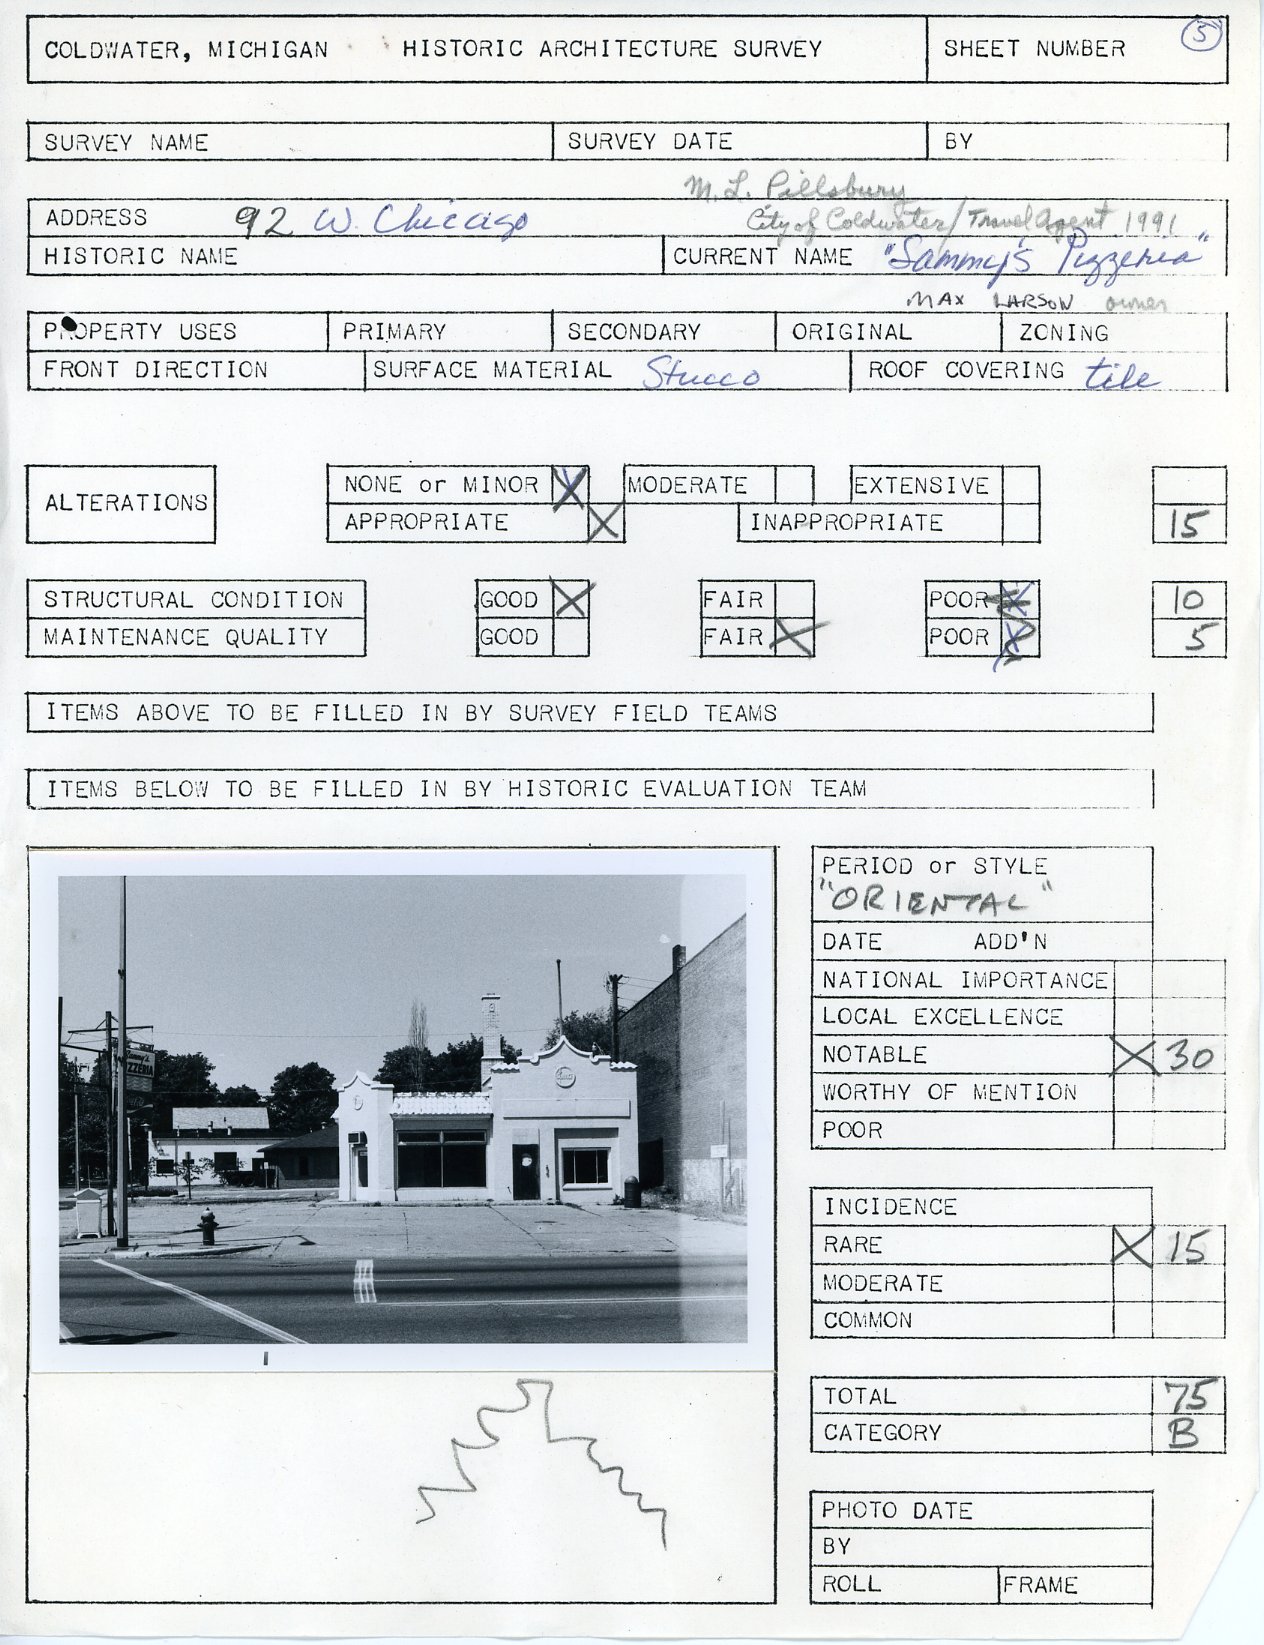 COLDWATER, MICHIGAN HISTORIC ARCHITECTURE SURVEY SHEET NUMBER 5
SURVEY NAME SURVEY DATE BY
M. L. Pillsbury
ADDRESS 92 W. Chicago City of Coldwater/Travel Agent 1991
HISTORIC NAME CURRENT NAME "Sammy's Pizzeria"
MAX LARSON owner
PROPERTY USES PRIMARY SECONDARY ORIGINAL ZONING
FRONT DIRECTION SURFACE MATERIAL Stucco ROOF COVERING tile
ALTERATIONS
NONE or MINOR X MODERATE EXTENSIVE
APPROPRIATE X INAPPROPRIATE 15
STRUCTURAL CONDITION GOOD X FAIR POOR 10
MAINTENANCE QUALITY GOOD FAIR X POOR 5
ITEMS ABOVE TO BE FILLED IN BY SURVEY FIELD TEAMS
ITEMS BELOW TO BE FILLED IN BY HISTORIC EVALUATION TEAM
Sammy's
PIZZERIA
PERIOD or STYLE
"ORIENTAL"
DATE ADD'N
NATIONAL IMPORTANCE
LOCAL EXCELLENCE
NOTABLE X 30
WORTHY OF MENTION
POOR
INCIDENCE
RARE X 15
MODERATE
COMMON
TOTAL 75
CATEGORY B
PHOTO DATE
BY
ROLL FRAME